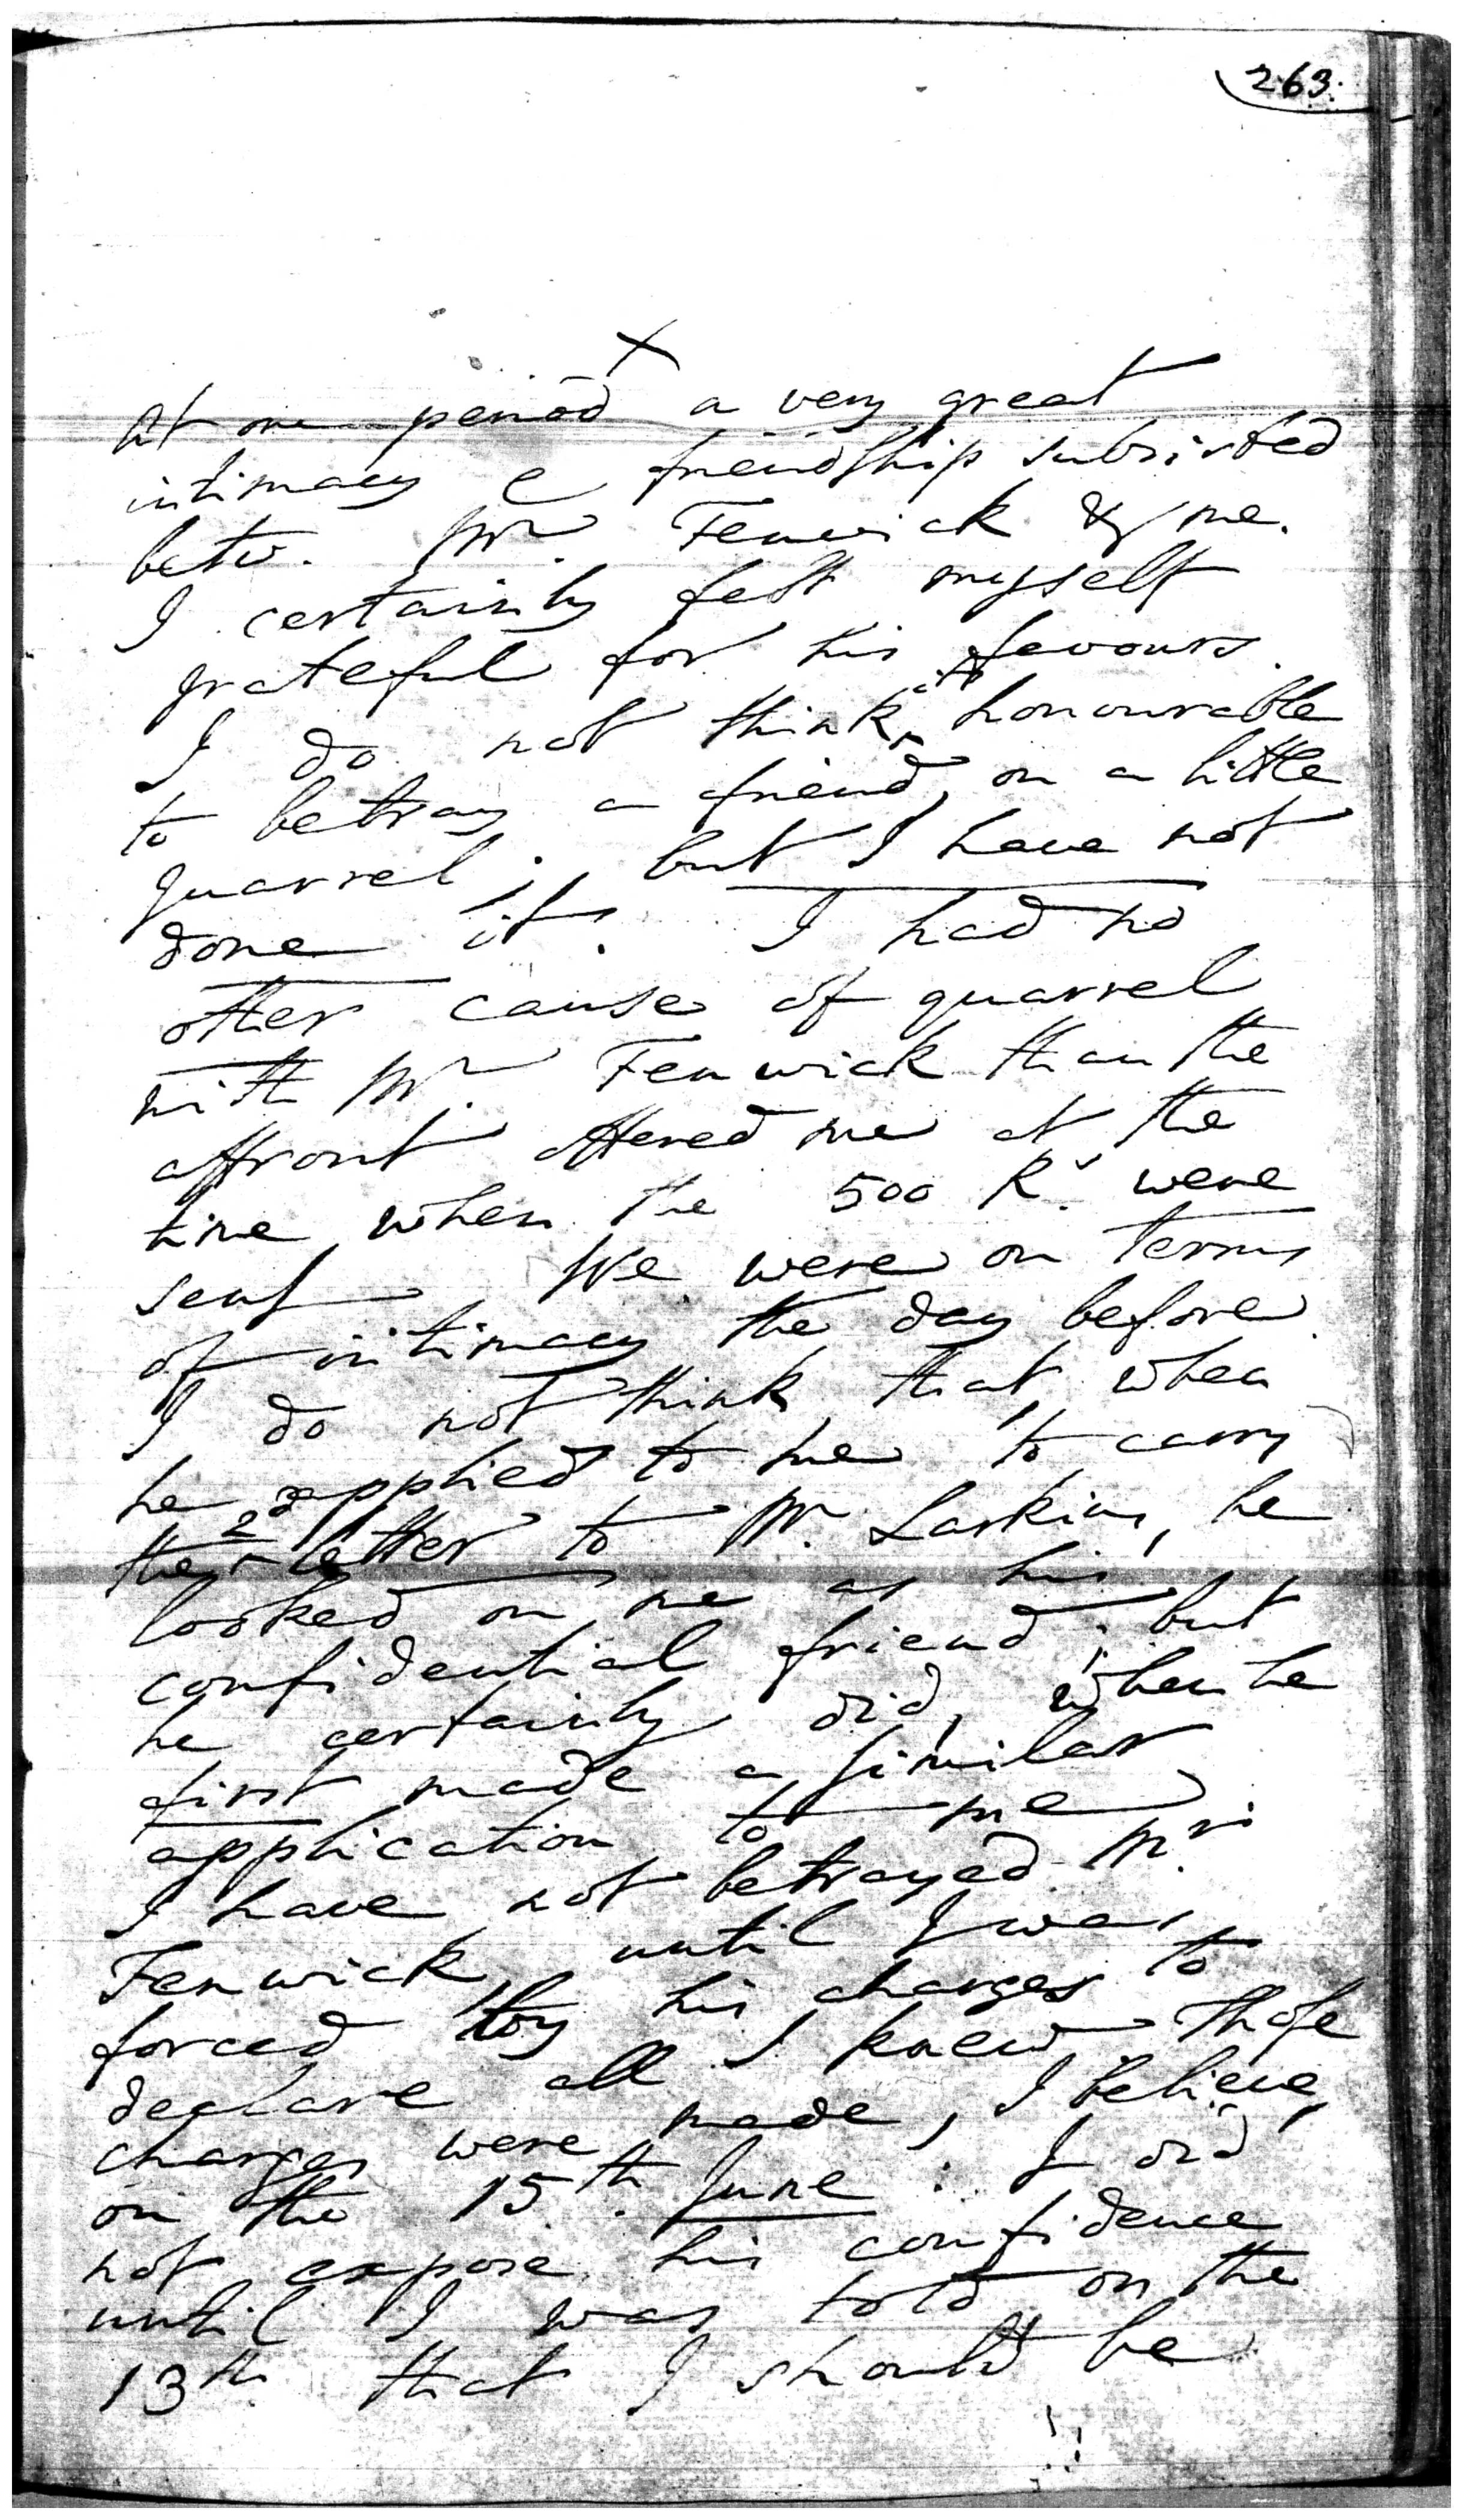 263.
X
At one period a very great
intimacy & friendship subsisted
betw. Mr. Fenwick & me.
I certainly felt myself
grateful for his favours.
I do not think it honourable
to betray a friend, on a little
quarrel; but I have not
done it. I had no
other cause of quarrel
with Mr. Fenwick than the
affront offered me at the
time when the 500 Rs. were
sent. We were on terms
of intimacy the day before.
I do not think that, when
he applied to me to carry
the 2d letter to Mr. Larkins, he
looked on me as his
confidential friend; but
he certainly did, when he
first made a similar
application to me
I have not betrayed Mr.
Fenwick, until I was
forced by his charges to
declare all I knew. Those
charges were made, I believe,
on the 15th. June: I did
not expose his confidence
until I was told on the
13th that I should be